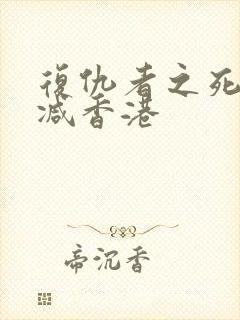 復仇者之死
減香港
帝沉香